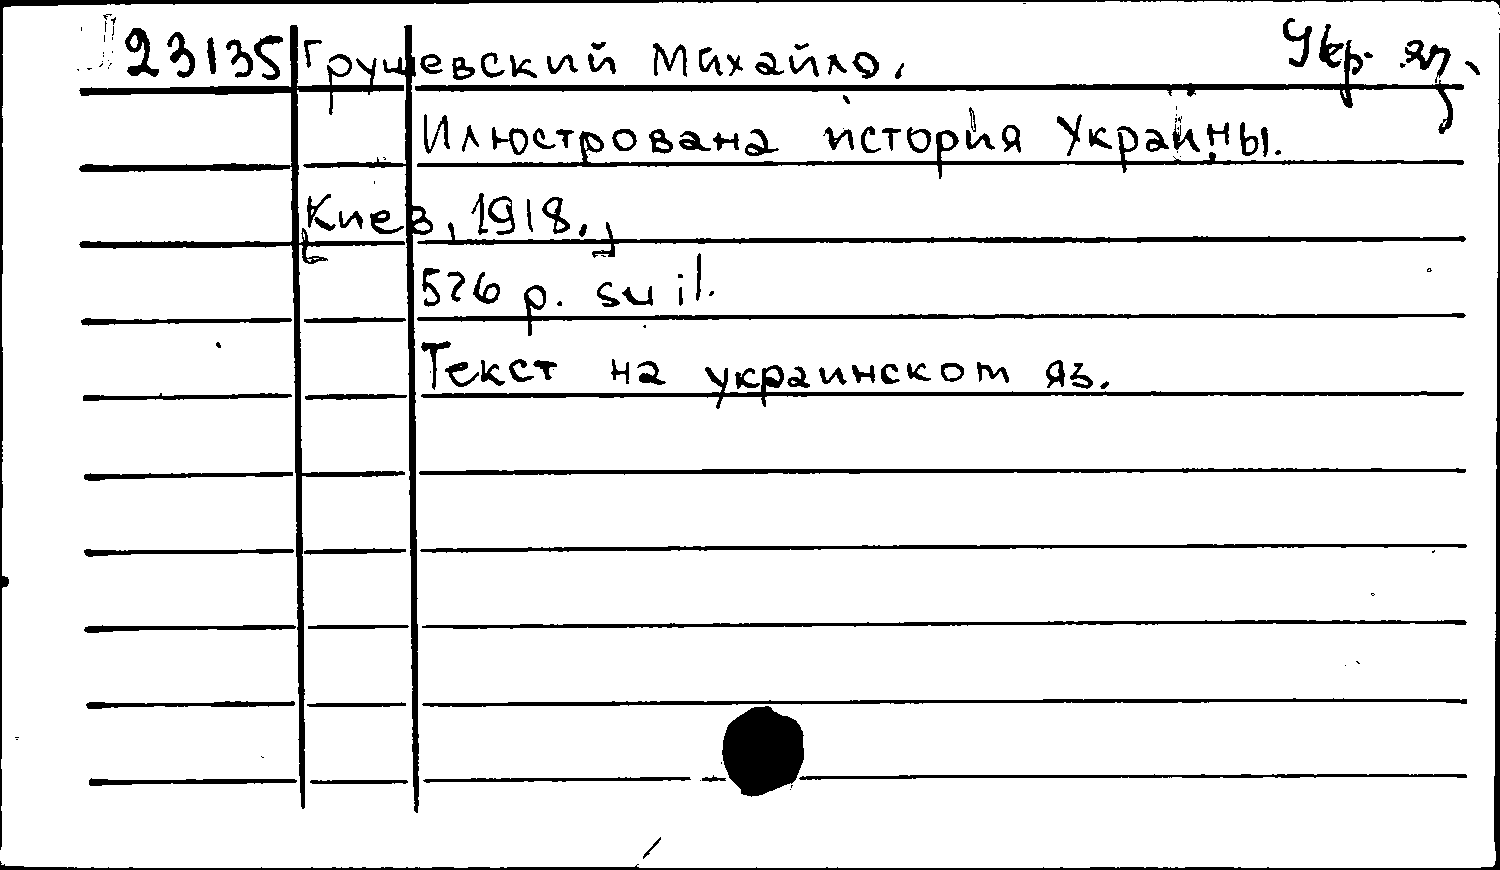 23135 Грушевский Михайло. Укр. яз.
Илюстрована история Украины.
Киев, 1918.,
526 p. su il.
Текст на украинском яз.